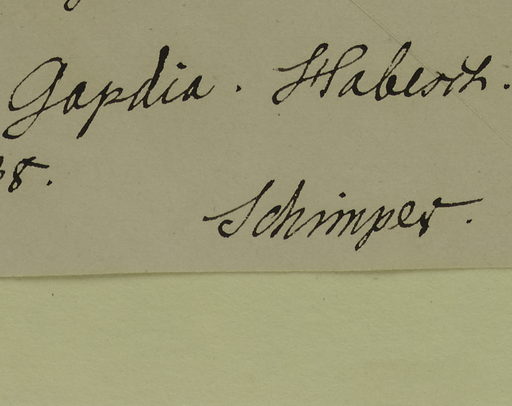 Gapdia. Habesch.
8.
Schimper.